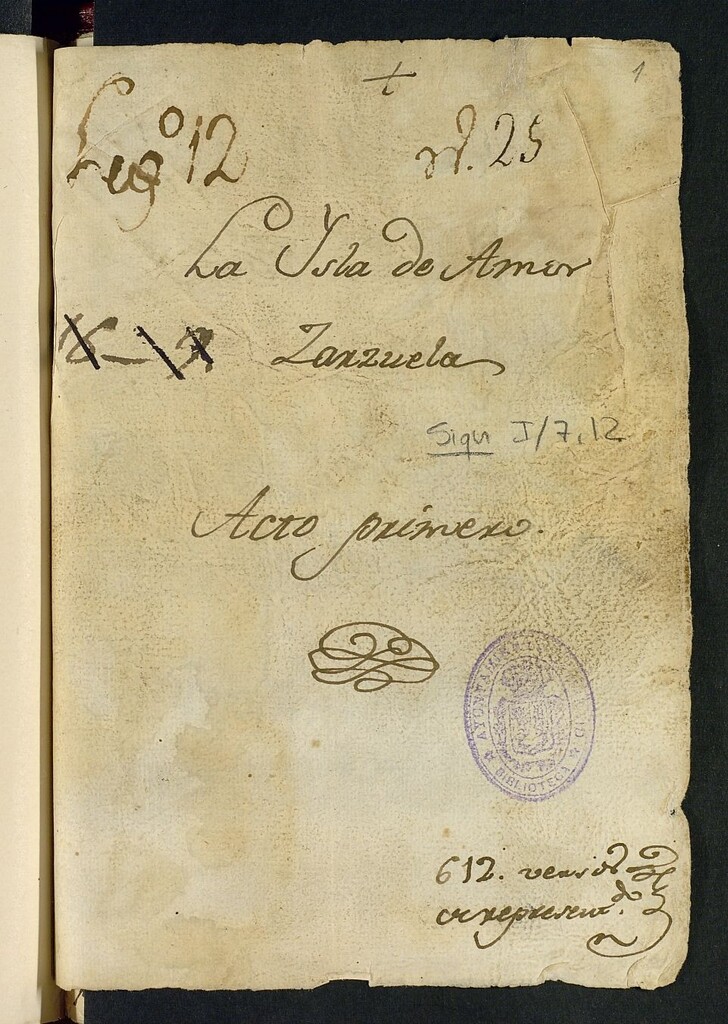 +
1
Leg⁰ 12
N. 25
La Ysla de Amor
Zarzuela
Sign J/7, 12
Acto primero.
AYUNTAMIENTO
BIBLIOTECA
612. versos